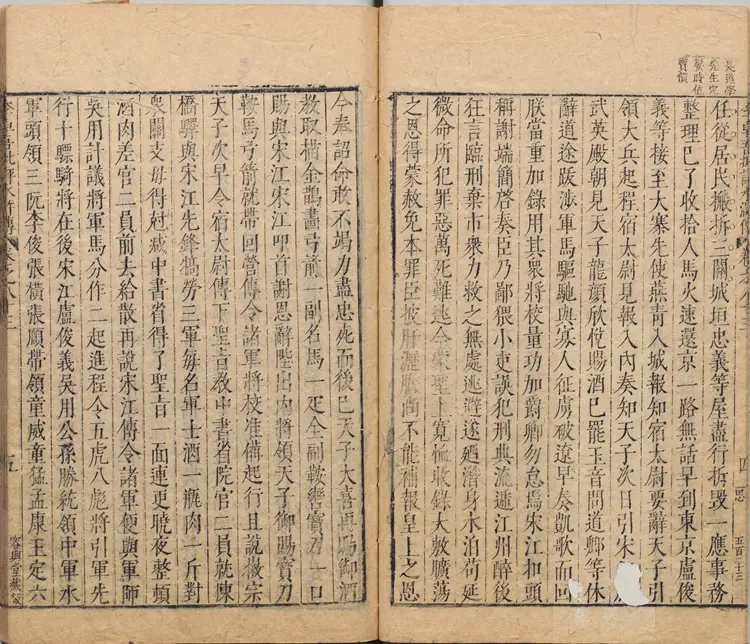 是道學
先生定
要時值
實價
任從居民搬拆三關城垣忠義等屋盡行拆毀一應事務
整理已了收拾人馬火速還京一路無話早到東京盧俊
義等接至大寨先使燕青入城報知宿太尉要辭天子引
領大兵起程宿太尉見報入內奏知天子次日引宋
武英殿朝見天子龍顏欣悅賜酒已罷玉音問道卿等休
辭道途跋涉軍馬驅馳與寡人征虜破遼早奏凱歌而回
朕當重加錄用其衆將校量功加爵卿勿怠焉宋江扣頭
稱謝端簡啓奏臣乃鄙猥小吏誤犯刑典流遞江州醉後
狂言臨刑棄市衆力救之無處逃避遂廼潛身水泊苟延
微命所犯罪惡萬死難逃今蒙聖上寬恤收錄大敷曠蕩
之恩得蒙赦免本罪臣披肝瀝膽尚不能補報皇上之恩
四
五百二十三
今奉詔命敢不竭力盡忠死而後已天子大喜再賜御酒
教取描金鵲畫弓箭一副名馬一疋全副鞍轡寶刀一口
賜與宋江宋江叩首謝恩辭陛出內將領天子御賜寶刀
鞍馬弓箭就帶回營傳令諸軍將校准備起行且說徽宗
天子次早令宿太尉傳下聖旨教中書省院官二員就陳
橋驛與宋江先鋒犒勞三軍每名軍士酒一瓶肉一斤對
衆關支毋得尅減中書省得了聖旨一面連更曉夜整頓
酒肉差官二員前去給散再說宋江傳令諸軍便與軍師
吳用計議將軍馬分作二起進程令五虎八彪將引軍先
行十驃騎將在後宋江盧俊義吳用公孫勝統領中軍水
軍頭領三阮李俊張橫張順帶領童威童猛孟康王定六
五
容與堂藏板